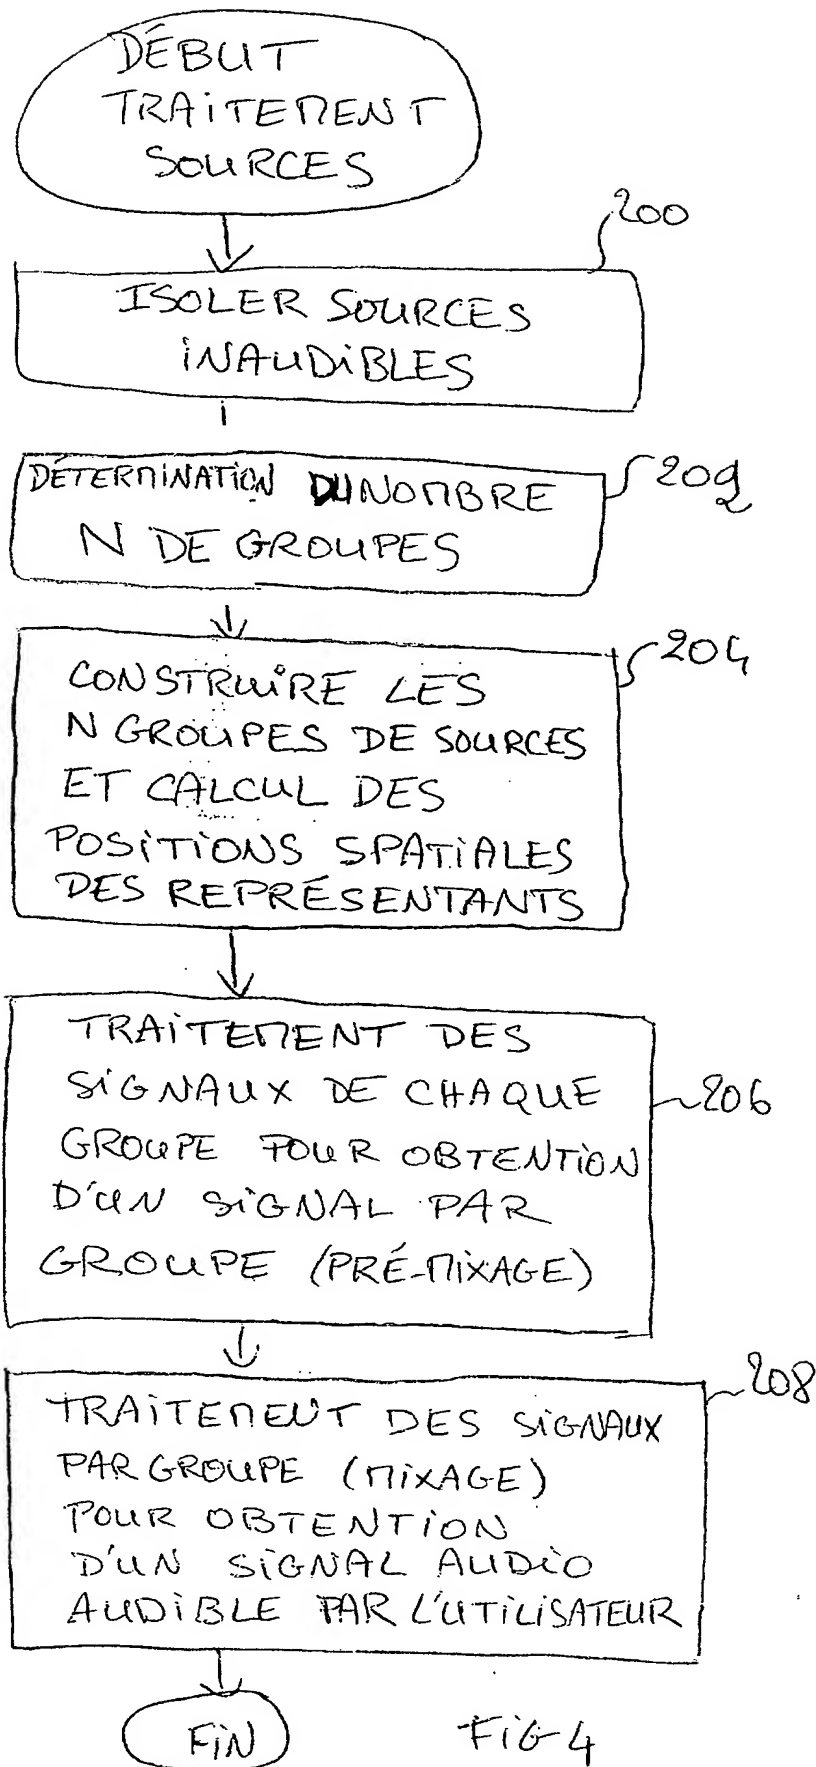 DÉBUT
TRAITEMENT
SOURCES
200
ISOLER SOURCES
INAUDIBLES
202
DÉTERMINATION DU NOMBRE
N DE GROUPES
204
CONSTRUIRE LES
N GROUPES DE SOURCES
ET CALCUL DES
POSITIONS SPATIALES
DES REPRÉSENTANTS
TRAITEMENT DES
SIGNAUX DE CHAQUE
206
GROUPE POUR OBTENTION
D'UN SIGNAL PAR
GROUPE (PRÉ-MIXAGE)
208
TRAITEMENT DES SIGNAUX
PAR GROUPE (MIXAGE)
POUR OBTENTION
D'UN SIGNAL AUDIO
AUDIBLE PAR L'UTILISATEUR
FIN
FIG 4